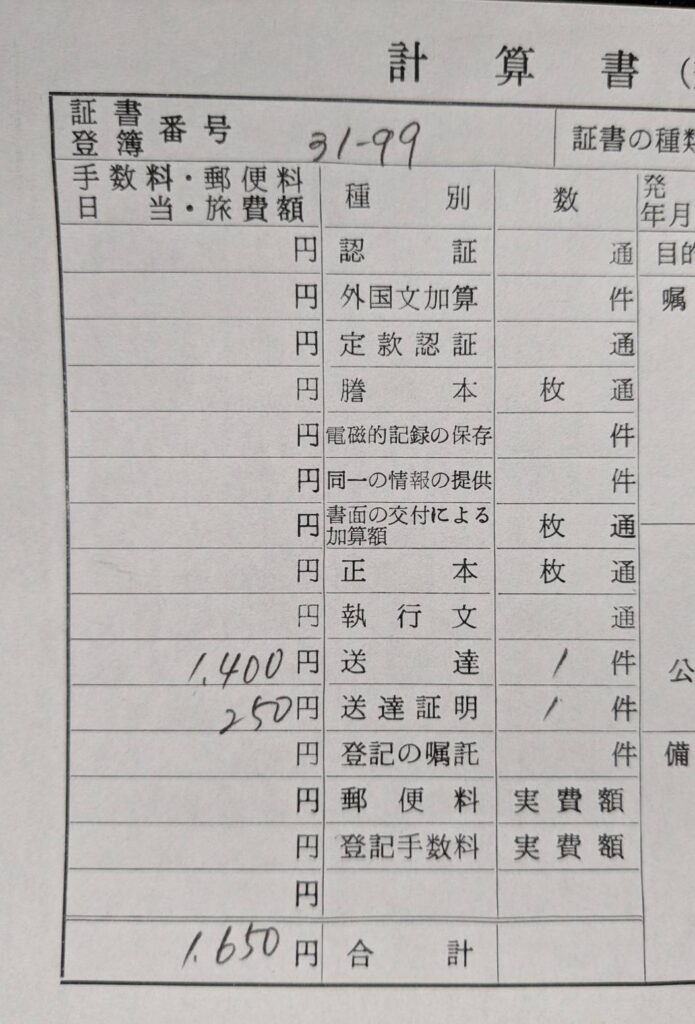 計算書（
証書登簿番号 31-99 証書の種類
手数料・郵便料
日当・旅費額 種別 数 発
年月
円 認証 通 目的
円 外国文加算 件 嘱
円 定款認証 通
円 謄本 枚 通
円 電磁的記録の保存 件
円 同一の情報の提供 件
円 書面の交付による加算額 枚 通
円 正本 枚 通
円 執行文 通
1,400円 送達 1件 公
250円 送達証明 1件
円 登記の嘱託 件 備
円 郵便料 実費額
円 登記手数料 実費額
円
1,650円 合計